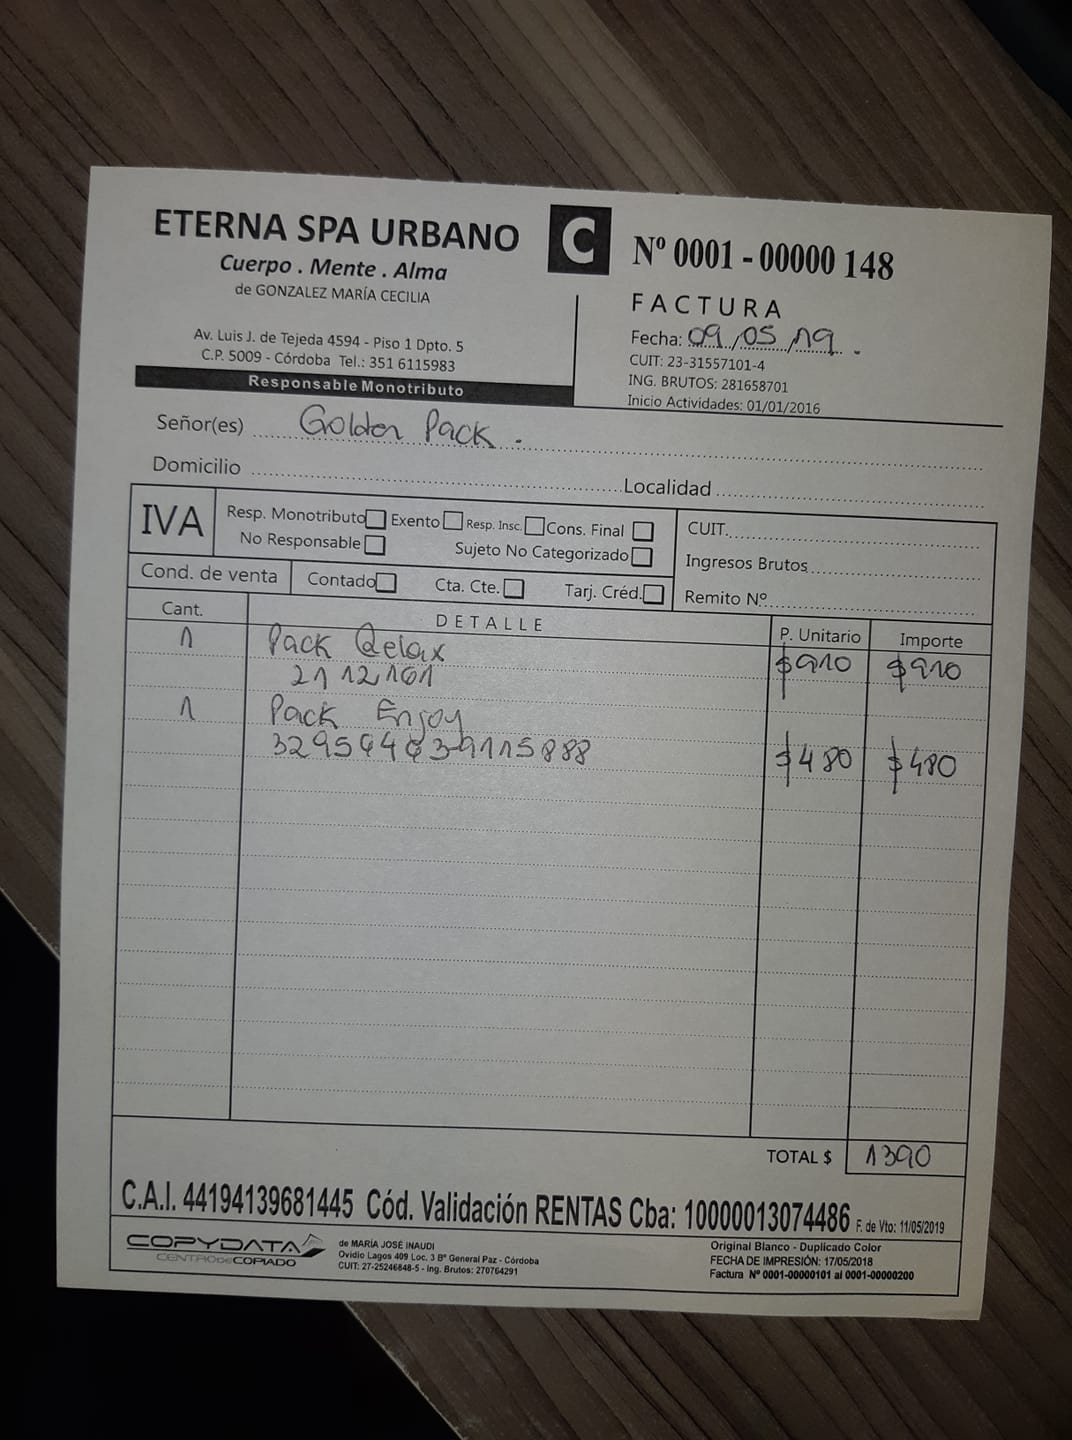 ETERNA SPA URBANO
Cuerpo . Mente . Alma
de GONZALEZ MARÍA CECILIA
Av. Luis J. de Tejeda 4594 - Piso 1 Dpto. 5
C.P. 5009 - Córdoba Tel.: 351 6115983
Responsable Monotributo
C
Nº 0001 - 00000 148
FACTURA
Fecha: 09/05/19.
CUIT: 23-31557101-4
ING. BRUTOS: 281658701
Inicio Actividades: 01/01/2016
Señor(es) Golden Pack.
Domicilio Localidad
IVA
Resp. Monotributo Exento Resp. Insc. Cons. Final
No Responsable Sujeto No Categorizado
CUIT.
Ingresos Brutos
Remito Nº
Cond. de venta Contado Cta. Cte. Tarj. Créd.
Cant. DETALLE P. Unitario Importe
1 Pack Relax $910 $910
21 12 161
1 Pack Enjoy
$480 $480
TOTAL $ 1390
C.A.I. 44194139681445 Cód. Validación RENTAS Cba: 10000013074486 F. de Vto: 11/05/2019
COPYDATA
CENTRO DE COPIADO
de MARÍA JOSÉ INAUDI
Ovidio Lagos 409 Loc. 3 Bº General Paz - Córdoba
CUIT: 27-25246848-5 - Ing. Brutos: 270764291
Original Blanco - Duplicado Color
FECHA DE IMPRESIÓN: 17/05/2018
Factura Nº 0001-00000101 al 0001-00000200